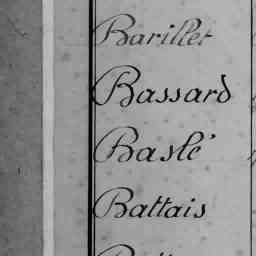 Barillet
Bassard
Baslé
Battais